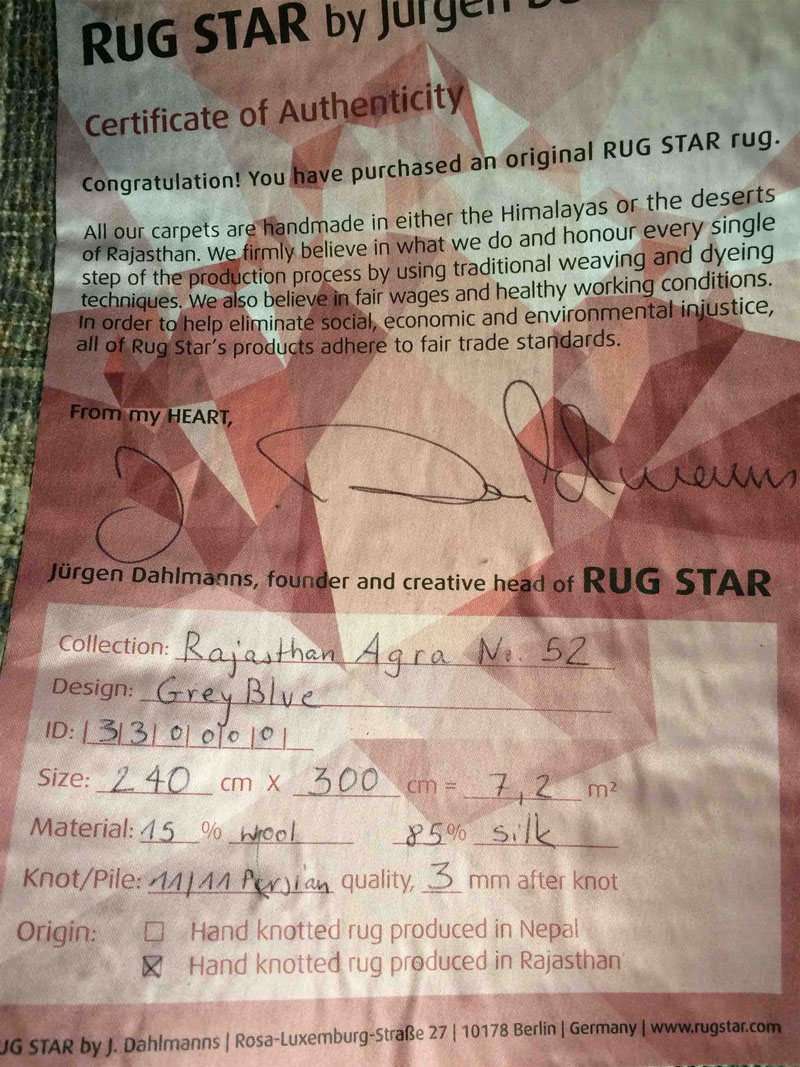 RUG STAR by Jürgen
Certificate of Authenticity
Congratulation! You have purchased an original RUG STAR rug.
All our carpets are handmade in either the Himalayas or the deserts
of Rajasthan. We firmly believe in what we do and honour every single
step of the production process by using traditional weaving and dyeing
techniques. We also believe in fair wages and healthy working conditions.
In order to help eliminate social, economic and environmental injustice,
all of Rug Star's products adhere to fair trade standards.
From my HEART,
J Dahlmanns
Jürgen Dahlmanns, founder and creative head of RUG STAR
Collection: Rajasthan Agra No. 52
Design: Grey Blue
ID: |3|3|0|0|0|0|
Size: 240 cm X 300 cm = 7,2 m²
Material: 15 % wool 85% silk
Knot/Pile: 11/11 Persian quality, 3 mm after knot
Origin: Hand knotted rug produced in Nepal
Hand knotted rug produced in Rajasthan
UG STAR by J. Dahlmanns | Rosa-Luxemburg-Straße 27 | 10178 Berlin | Germany | www.rugstar.com